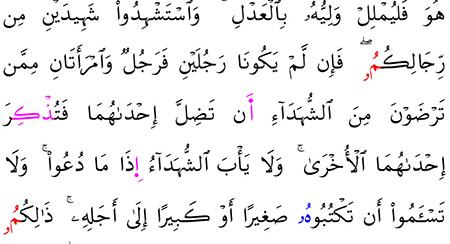 هُوَ فَلْيُمْلِلْ وَلِيُّهُۥ بِٱلْعَدْلِ ۚ وَٱسْتَشْهِدُوا۟ شَهِيدَيْنِ مِن
رِّجَالِكُمُۥ ۖ فَإِن لَّمْ يَكُونَا رَجُلَيْنِ فَرَجُلٌ وَٱمْرَأَتَانِ مِمَّن
تَرْضَوْنَ مِنَ ٱلشُّهَدَآءِ أَن تَضِلَّ إِحْدَىٰهُمَا فَتُذْكِرَ
إِحْدَىٰهُمَا ٱلْأُخْرَىٰ ۚ وَلَا يَأْبَ ٱلشُّهَدَآءُ إِذَا مَا دُعُوا۟ ۚ وَلَا
تَسْـَٔمُوٓا۟ أَن تَكْتُبُوهُۥ صَغِيرًا أَوْ كَبِيرًا إِلَىٰٓ أَجَلِهِۦ ۚ ذَٰلِكُمُۥ